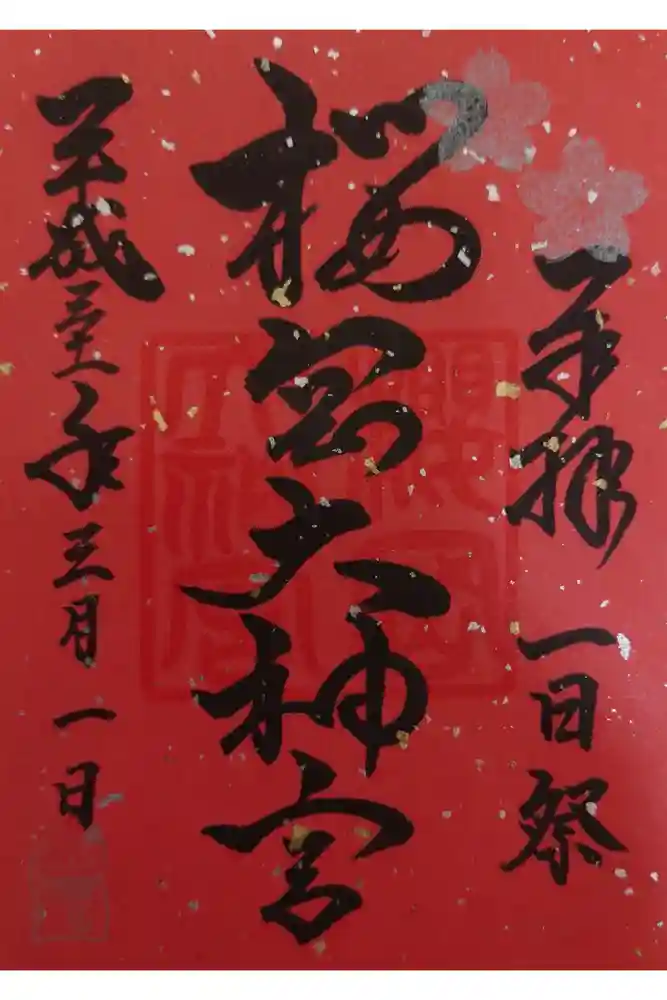 奉拝 一日祭
桜宮大神宮
平成三十一年三月一日